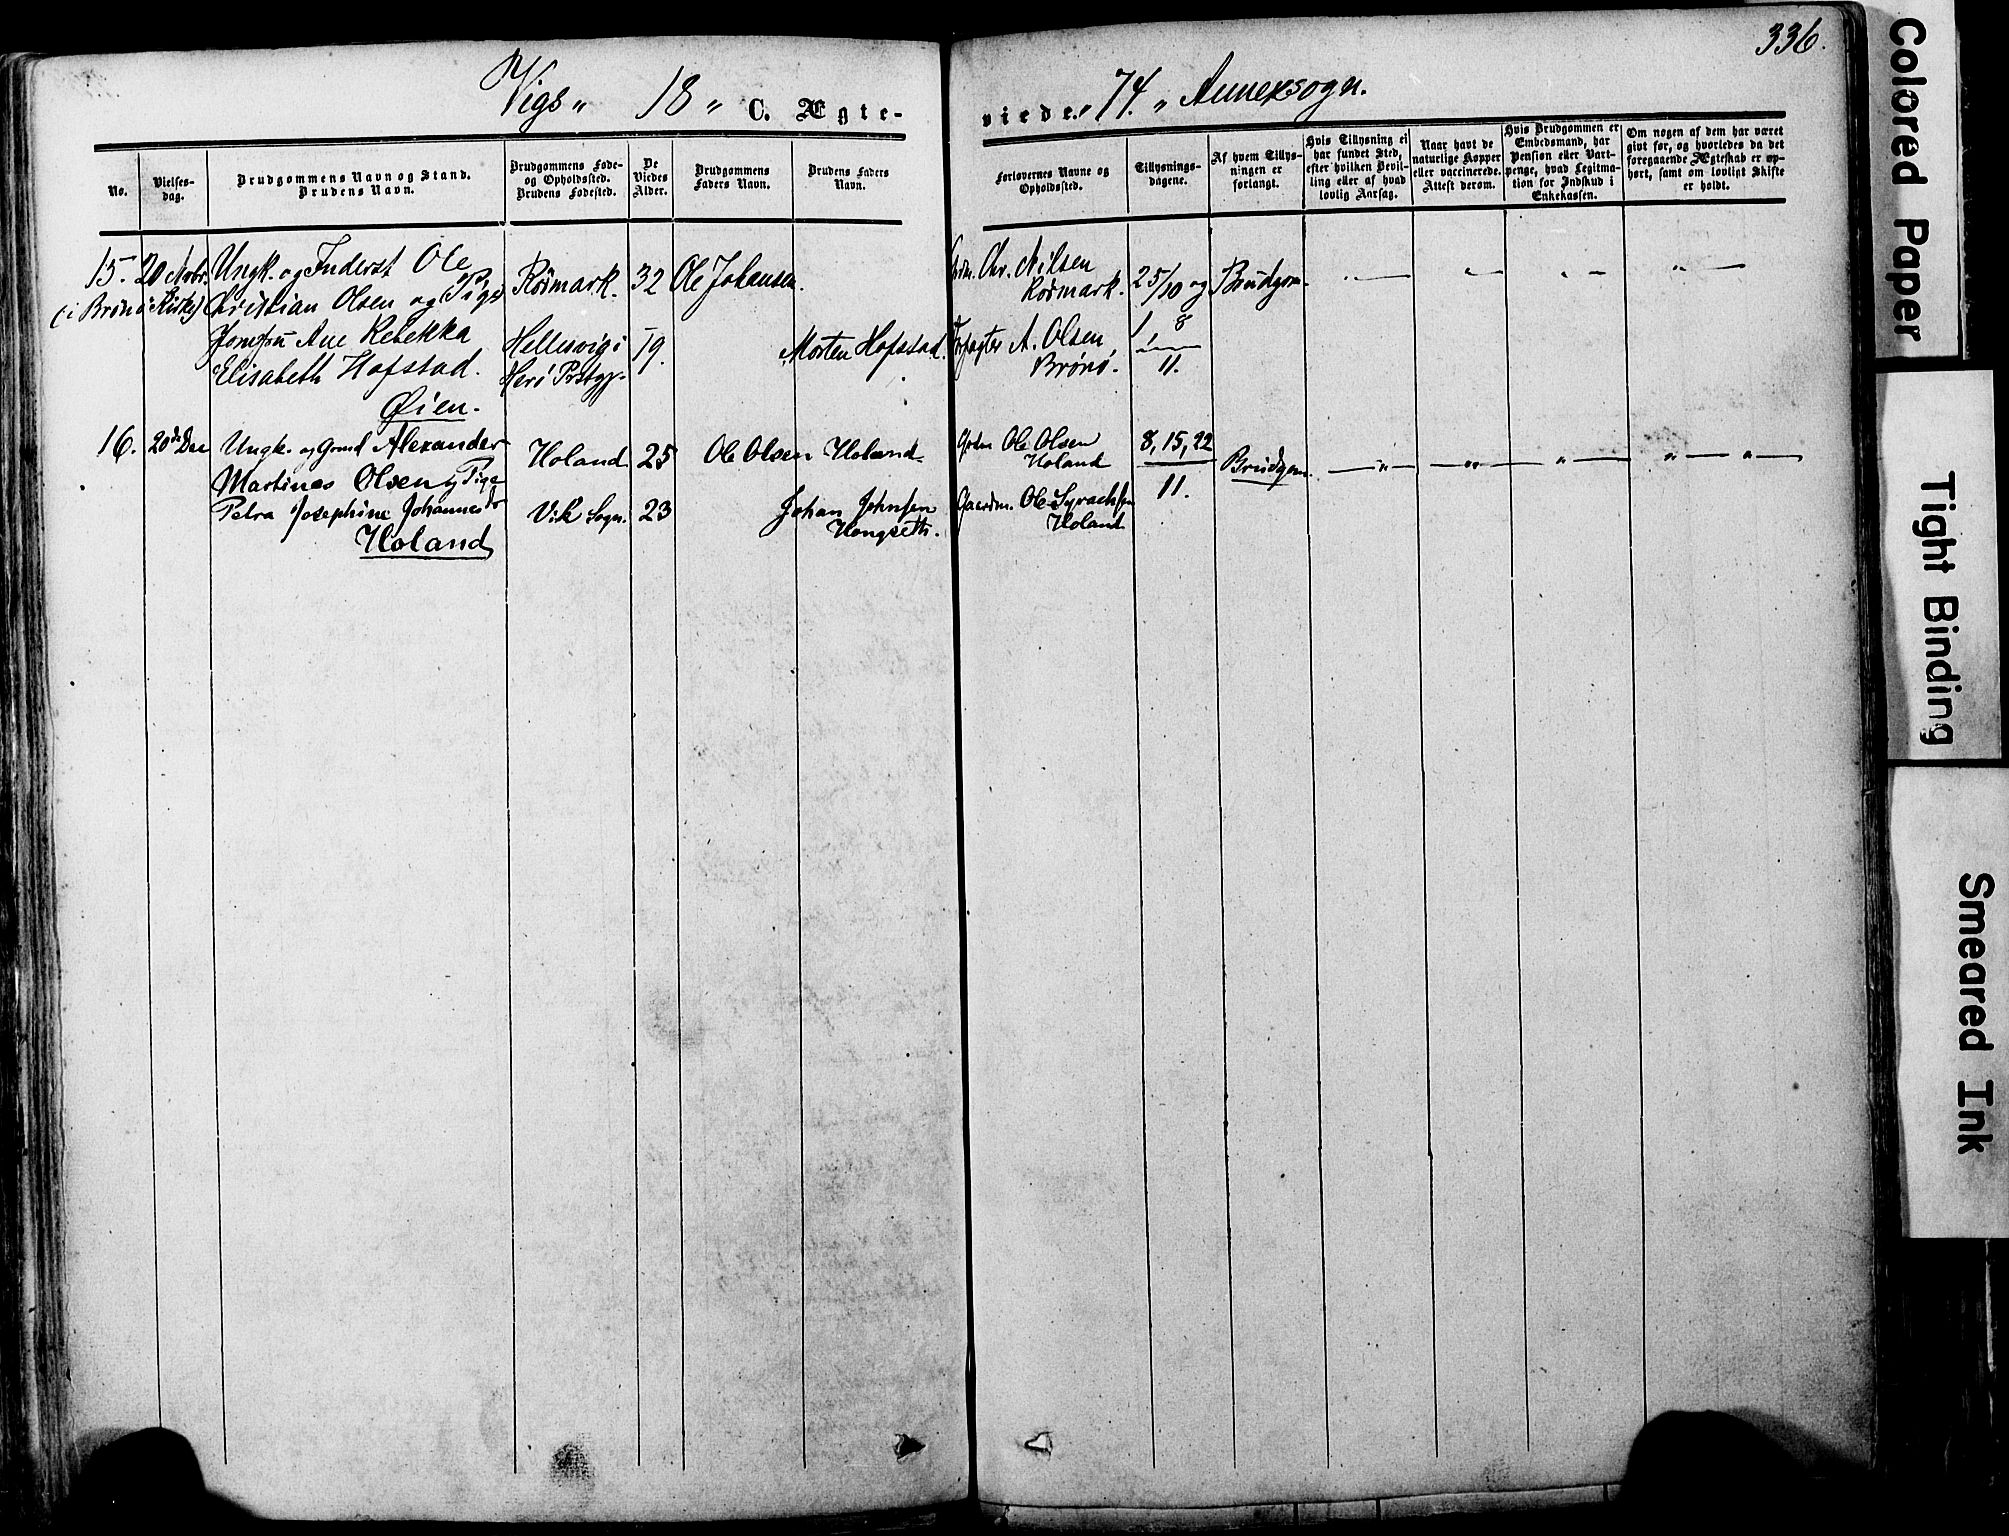 336.
Vigs „ 18 „ C. Ægte-
viede. „ 74. „ Annexsogn.
No.
Vielses-
dag.
Brudgommens Navn og Stand.
Brudens Navn.
Brudgommens Føde-
og Opholdssted.
Brudens Fødested.
De
Viedes
Alder.
Brudgommens
Faders Navn.
Brudens Faders
Navn.
Forlovernes Navne og
Opholdssted.
Tillysnings-
dagene.
Af hvem Tillys-
ningen er
forlangt.
Hvis Tillysning ei
har fundet Sted,
efter hvilken Bevil-
ling eller af hvad
lovlig Aarsag.
Naar havt de
naturlige Kopper
eller vaccinerede.
Attest derom.
Hvis Brudgommen er
Embedsmand, har
Pension eller Vart-
penge, hvad Legitima-
tion for Indskud i
Enkekassen.
Om nogen af dem har været
gift før, og hvorledes da det
foregaaende Ægteskab er op-
hørt, samt om lovligt Skifte
er holdt.
15. 20 Novbr. Ungk. og Inderst Ole
(i Brønø Kirke) Christian Olsen og Pige
Jomfru Ane Rebekka
Elisabeth Hofstad.
Øien.
Rødmark.
Hellesvig i
Herø Prstgp.
32
19.
Ole Johansen.
Morten Hofstad.
Grdm. Chr. Nilsen
Rødmark.
A. Olsen,
Brønø.
25/10 og
1, 8
11.
Brudgom.
16. 20de Dec Ungk. og Grmd Alexander
Martinus Olsen og Pige
Petra Josephine Johannesdr
Holand
Holand
Vik Sogn.
25
23
Ole Olsen Holand
Johan Johnsen
Hongseth.
Grdm Ole Olsen
Holand
Gaardm. Ole Syrachsen
Holand
8, 15, 22
11.
Brudgom.
Colored Paper
Tight Binding
Smeared Ink